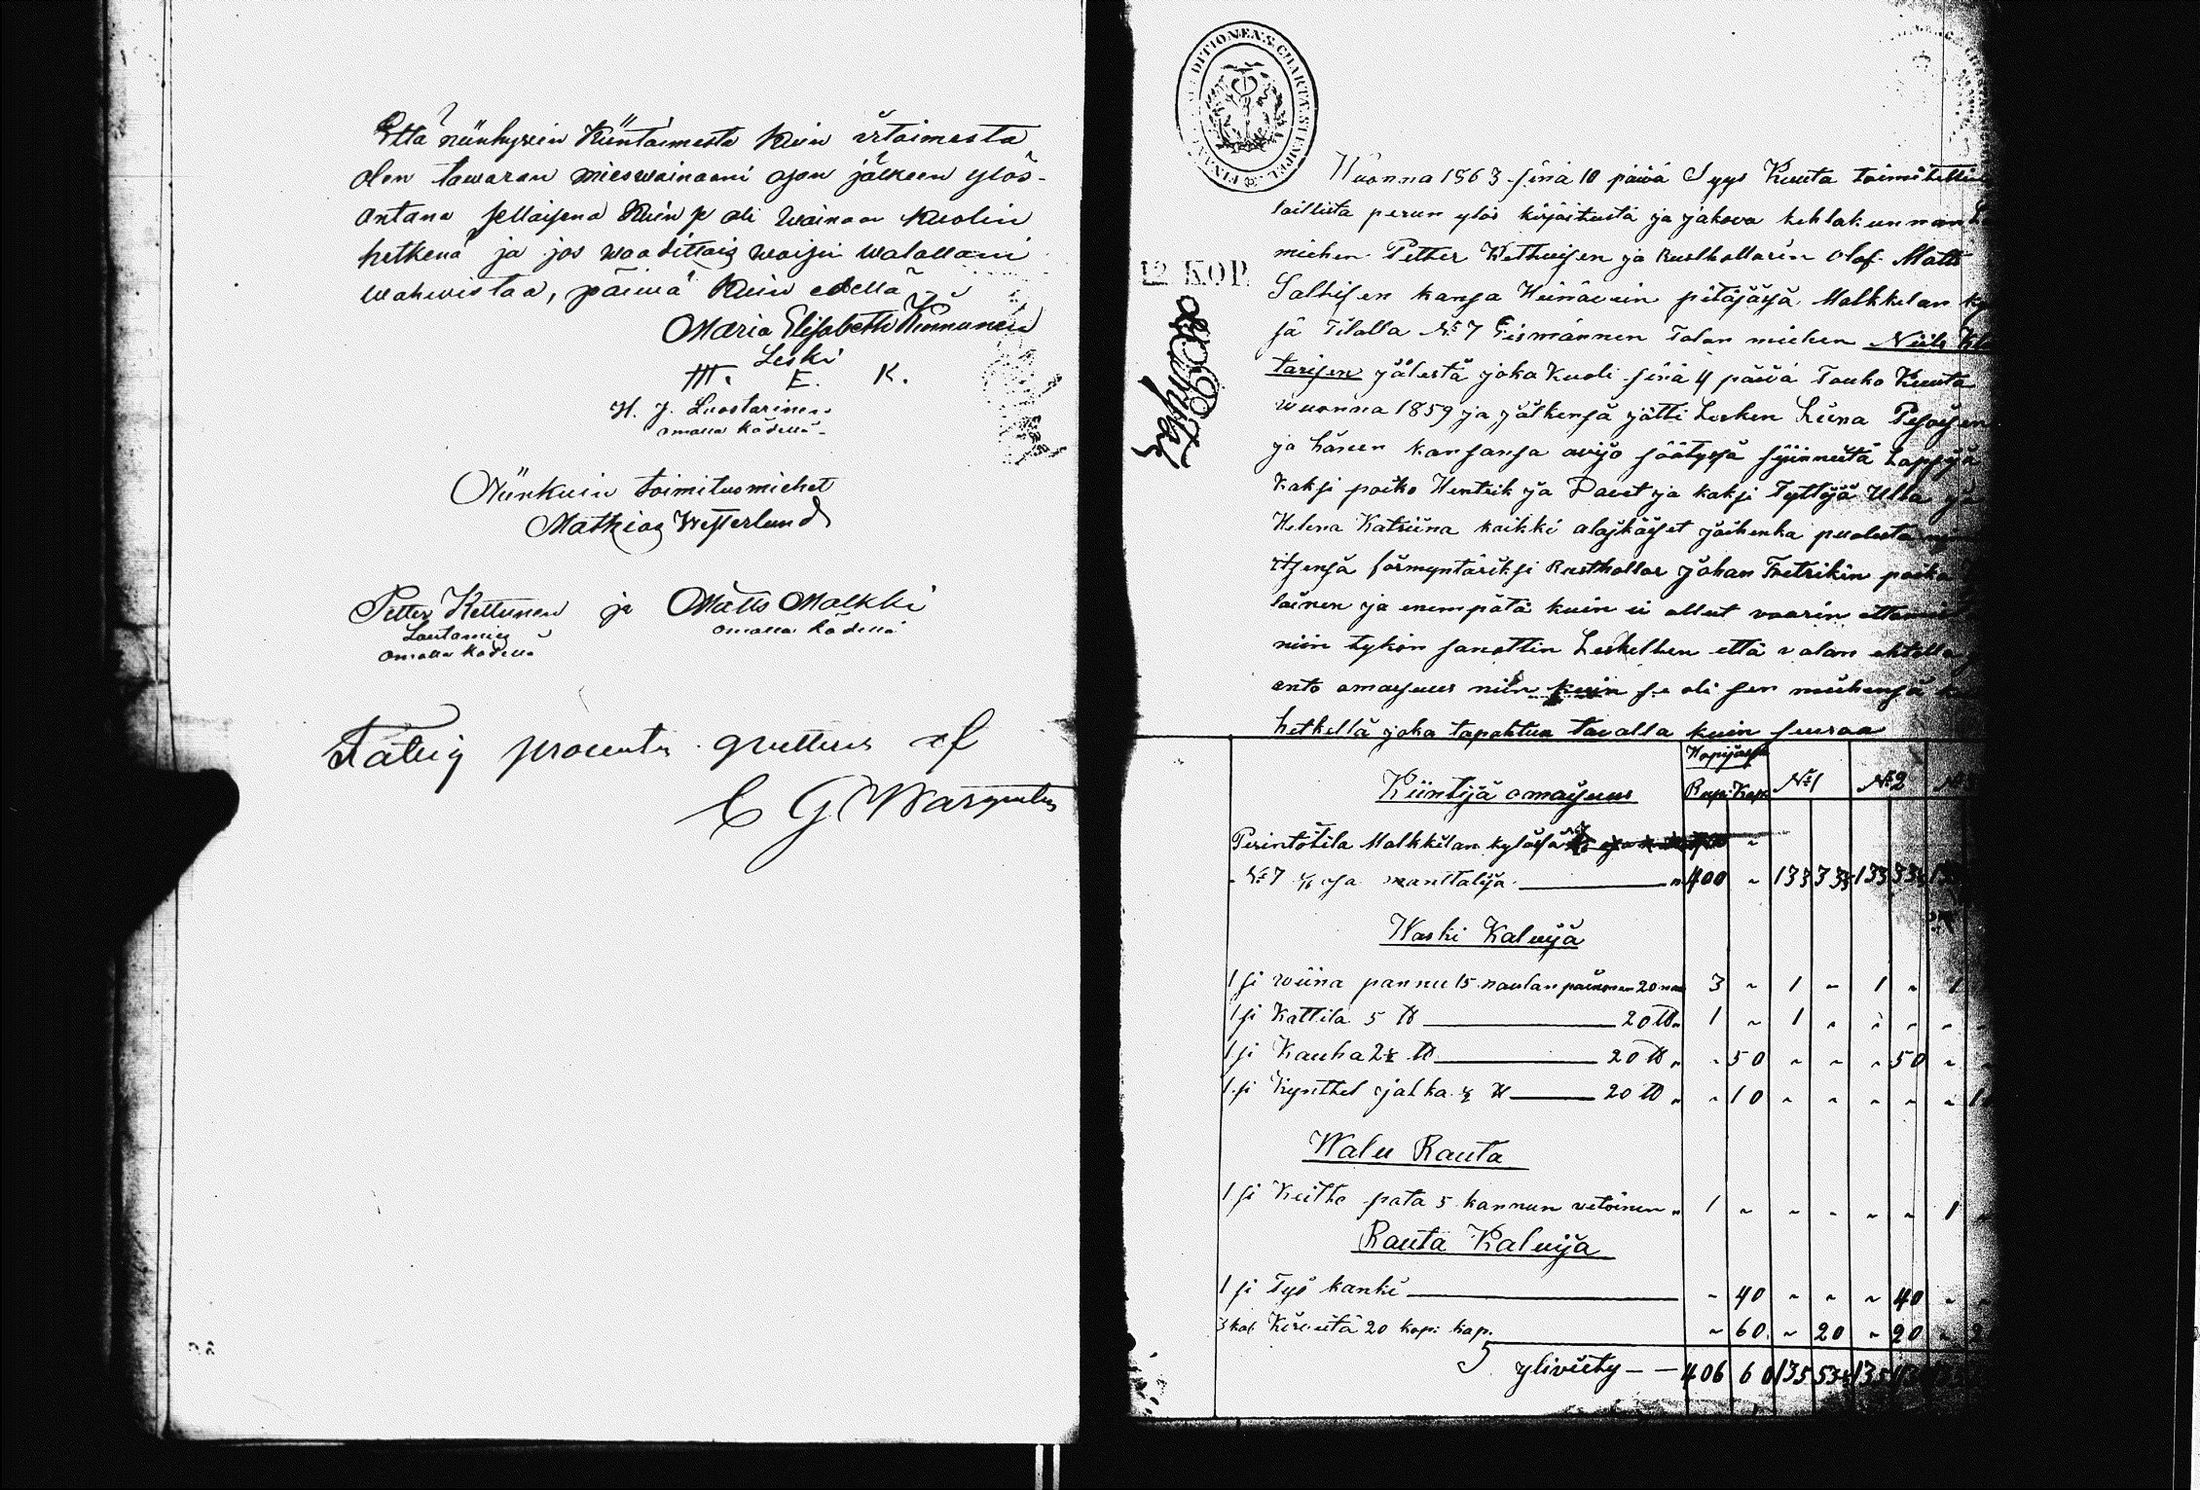 Että niinhyvin kiintaimesta kuin irtaimesta
olen tawaran mieswainaani ajan jälkeen ylös-
antana sellaisena kuin se oli wainaan kuolin
hetkenä ja jos waadittais woisin walallani
wahwistaa, päiwä kuin edellä
Maria Elisabeth Kinnunen
Leski
M. E. K.
H. J. Luostarinen
omalla kädellä
Niinkuin toimitusmiehet
Mathias Westerlund
Petter Kettunen ja Matts Malkki
Lautamies omalla kädellä
omalla kädellä
Fattig procenter qvitteras af
C G Wargentin
12 KOP.
Wuonna 1863 sinä 10 päivä Syys Kuuta toimitettiin
laillista perun ylös kirjoitusta ja jakova kihlakunnan
miehen Petter Kettuisen ja Rusthollarin Olof Matts
Saltisen kansa Heinävein pitäjäsä Malkkilan
sä Tilalla No 7 Eismännen Talan miehen Niils
tarisen jälestä joka Kuoli sinä 4 päivä Touko Kuuta
wuonna 1859 ja jälkensä jätti Lesken Liena Pesosen
ja hänen kansansa avijo säätysä syinneitä Lapsija
kaksi poika Hentrik ja Pavet ja kaksi Tyttöjä Ulla ja
Helena Katriina kaikki alaikäiset joihenka puolesta
itsensä förmyntäriksi Rusthollar Johan Fretrikin poika
lainen ja enempätä kuin ei ollut vaarin
niin tykön sanottin Leskellen että valan ehtolla
anto omaisuus niin kuin se oli sen miehensä
hetkellä joka tapahtuu tavalla kuin seuraa
Kiintijä omaisuus Rupi Kop No 1 No 2
Perintötila Malkkilan kyläsä
No 7 osa manttalija 400 " 133 33 133 33
Waski Kaluja
1 si wiina pannu 15 naulan painonen 20 3 " 1 " 1 " 1
1 si Kattila 5 ℔ 20 ℔ 1 " 1 " " " "
1 si Kauha 2½ ℔ 20 ℔ " 50 " " " 50 "
1 si Kynttel jalka ½ ℔ 20 ℔ " 10 " " " " "
Walu Rauta
1 si Keitto pata 5 kannun vetoinen 1 " " " " " 1
Rauta Kaluja
1 si Työ kanki " 40 " " " 40 "
3 kal Kirveitä 20 kopi kap. " 60 " 20 " 20 "
yliviety 406 60 135 53